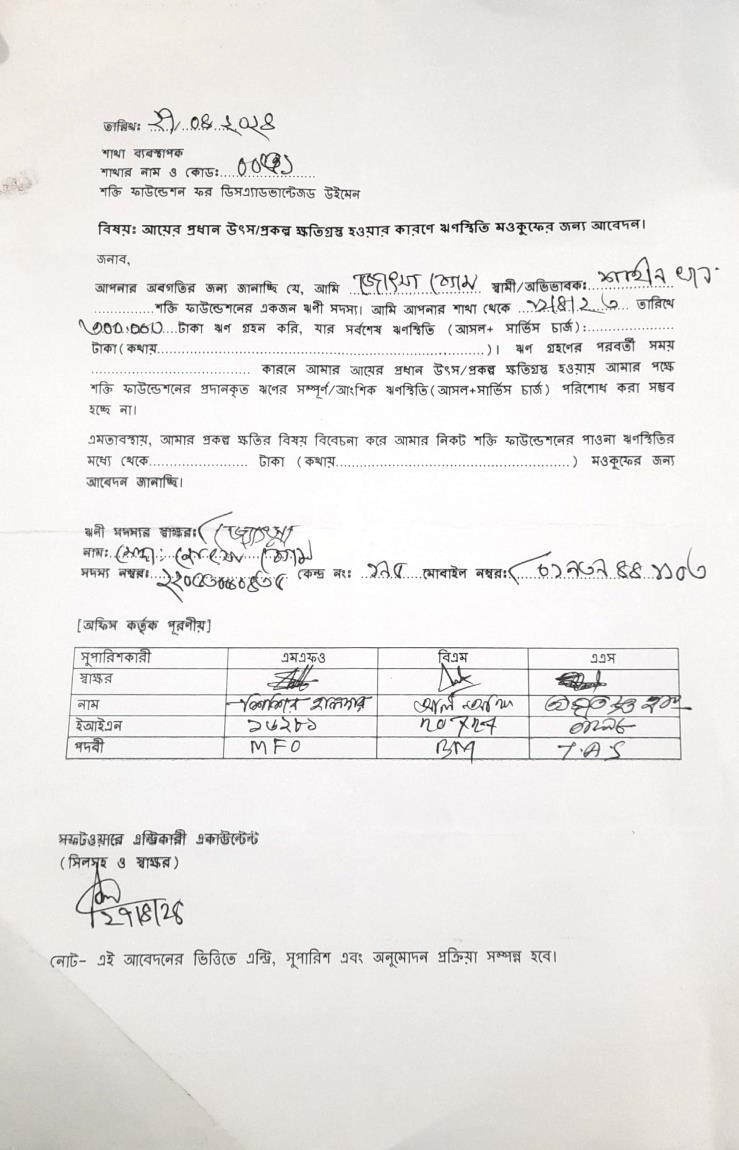 তারিখঃ ২৭/০৪/২০২৪
শাখা ব্যবস্থাপক
শাখার নাম ও কোডঃ
শক্তি ফাউন্ডেশন ফর ডিসএ্যাডভান্টেজড উইমেন
বিষয়ঃ আয়ের প্রধান উৎস/প্রকল্প ক্ষতিগ্রস্ত হওয়ার কারণে ঋণস্থিতি মওকুফের জন্য আবেদন।
জনাব,
আপনার অবগতির জন্য জানাচ্ছি যে, আমি স্বামী/অভিভাবকঃ
শক্তি ফাউন্ডেশনের একজন ঋনী সদস্য। আমি আপনার শাখা থেকে তারিখে
টাকা ঋন গ্রহন করি, যার সর্বশেষ ঋনস্থিতি (আসল+ সার্ভিস চার্জ):
টাকা(কথায়)। ঋন গ্রহণের পরবর্তী সময়
কারনে আমার আয়ের প্রধান উৎস/প্রকল্প ক্ষতিগ্রস্ত হওয়ায় আমার পক্ষে
শক্তি ফাউন্ডেশনের প্রদানকৃত ঋণের সম্পূর্ণ/আংশিক ঋনস্থিতি(আসল+সার্ভিস চার্জ) পরিশোধ করা সম্ভব
হচ্ছে না।
এমতাবস্থায়, আমার প্রকল্প ক্ষতির বিষয় বিবেচনা করে আমার নিকট শক্তি ফাউন্ডেশনের পাওনা ঋনস্থিতির
মধ্যে থেকে টাকা (কথায়) মওকুফের জন্য
আবেদন জানাচ্ছি।
ঋনী সদস্যর স্বাক্ষরঃ
নামঃ
সদস্য নম্বরঃ কেন্দ্র নংঃ মোবাইল নম্বরঃ
[অফিস কর্তৃক পূরণীয়]
সুপারিশকারী এমএফও বিএম এএস
স্বাক্ষর
নাম শিশির হালদার
ইআইএন ১৬২৮১
পদবী MFO BM T.A.S
সফটওয়ারে এন্ট্রিকারী একাউন্টেন্ট
(সিলসহ ও স্বাক্ষর)
২৭/৪/২৪
নোট- এই আবেদনের ভিত্তিতে এন্ট্রি, সুপারিশ এবং অনুমোদন প্রক্রিয়া সম্পন্ন হবে।